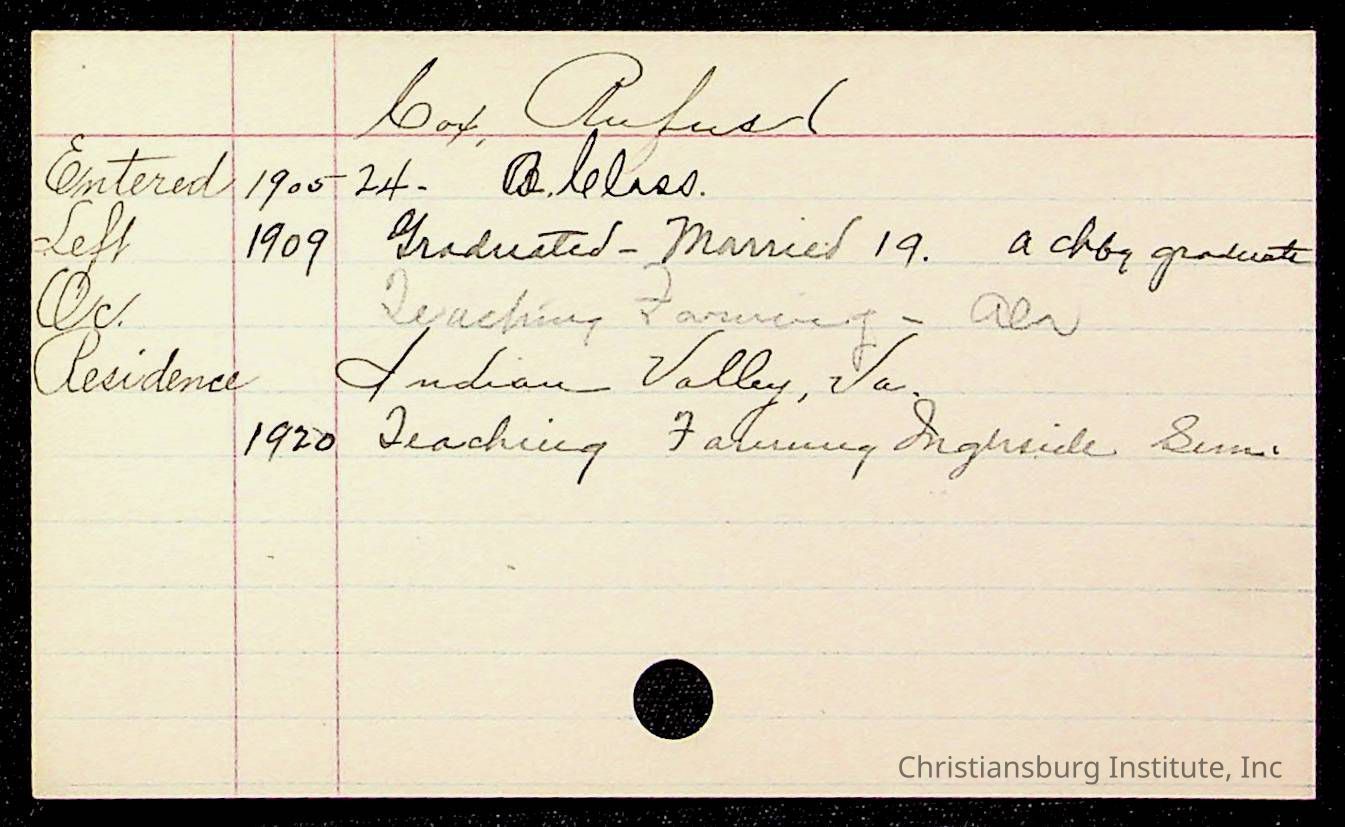 Cox, Rufus
Entered 1905 24- B. Class.
Left 1909 Graduated - Married 19. a chbg graduate
Oc. Teaching Farming - Ala
Residence Indian Valley, Va.
1920 Teaching Farming Ingleside Sem.
Christiansburg Institute, Inc